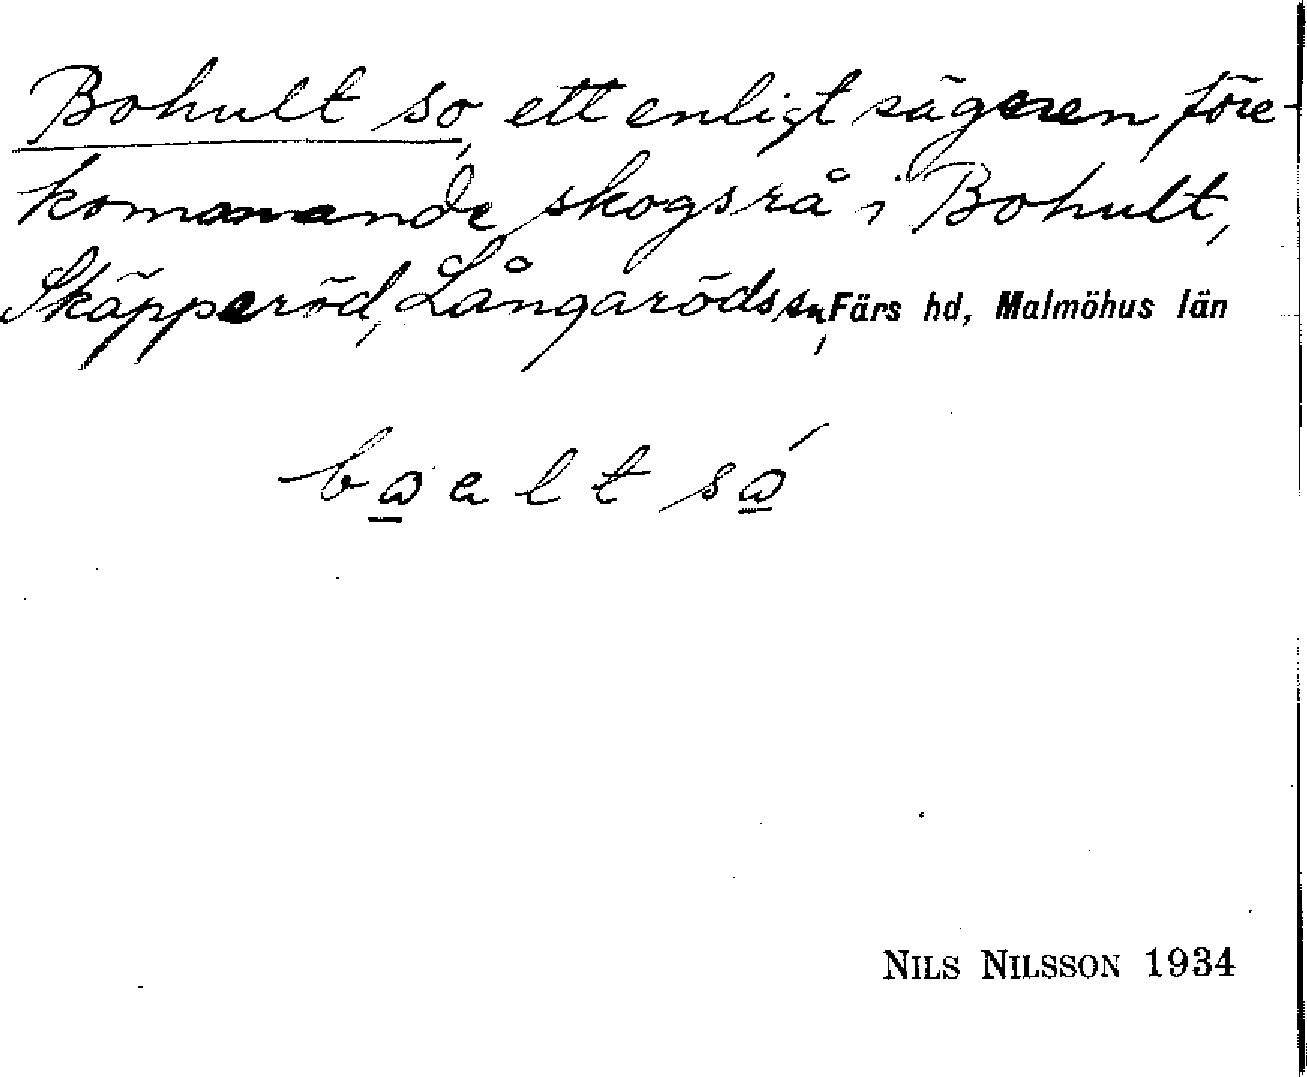 Bohult so, ett enligt sägnen före-
komanande skogsrå i Bohult,
Skäpperöd, Långaröds sn, Färs hd, Malmöhus län
NILS NILSSON 1934